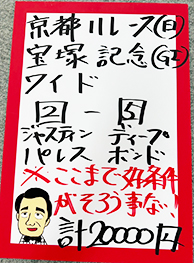 京都11レース(日)
宝塚記念(GⅠ)
ワイド
2 - 5
ジャスティン ディープ
パレス ボンド
※ここまで好条件
がそろう事ない!
計20000円